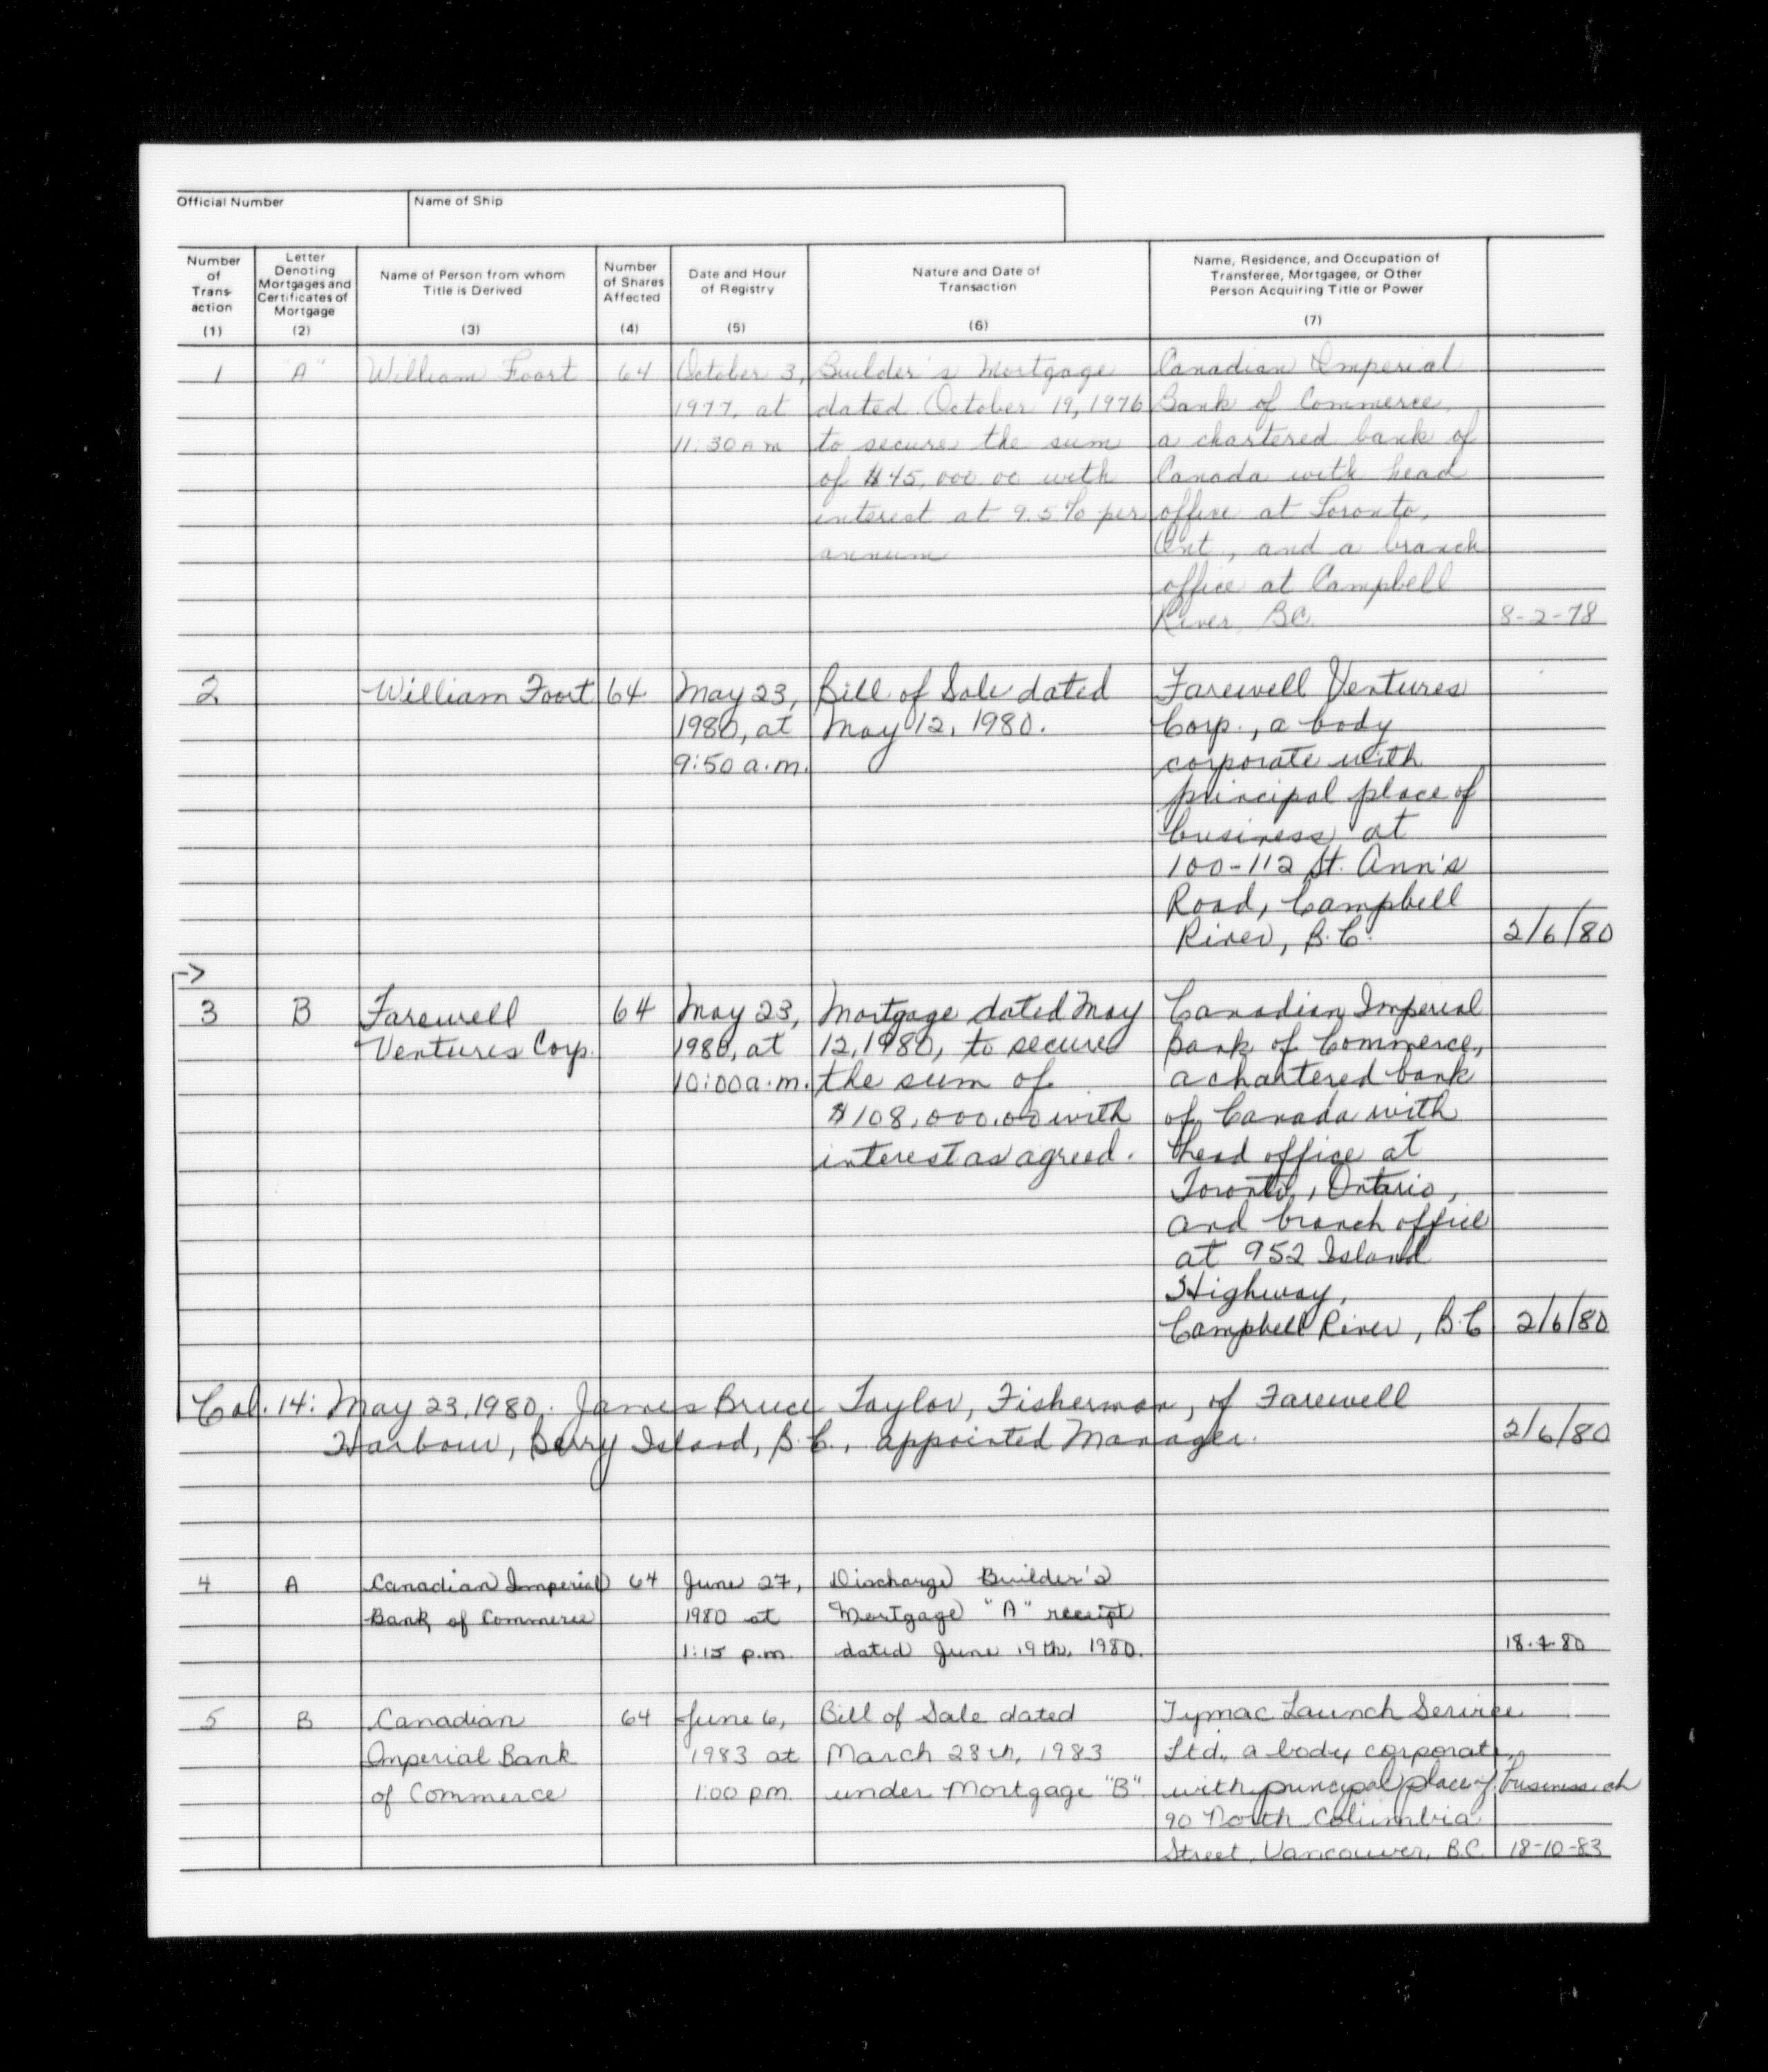 Official Number
Name of Ship
Number of Transaction (1)
Letter Denoting Mortgages and Certificates of Mortgage (2)
Name of Person from whom Title is Derived (3)
Number of Shares Affected (4)
Date and Hour of Registry (5)
Nature and Date of Transaction (6)
Name, Residence, and Occupation of Transferee, Mortgagee, or Other Person Acquiring Title or Power (7)
1 "A" William Foort 64 October 3, Builder's Mortgage Canadian Imperial
1977, at dated October 19, 1976 Bank of Commerce,
11:30 AM to secure the sum a chartered bank of
of $45,000.00 with Canada with head
interest at 9.5% per office at Toronto,
annum Ont, and a branch
office at Campbell
River, BC. 8-2-78
2 William Foort 64 May 23, Bill of Sale dated Farewell Ventures
1980, at May 12, 1980. Corp., a body
9:50 a.m. corporate with
principal place of
business at
100-112 St. Ann's
Road, Campbell
River, B.C. 2/6/80
->
3 B Farewell 64 May 23, Mortgage dated May Canadian Imperial
Ventures Corp. 1980, at 12, 1980, to secure Bank of Commerce,
10:00 a.m. the sum of a chartered bank
$108,000.00 with of Canada with
interest as agreed. head office at
Toronto, Ontario,
and branch office
at 952 Island
Highway,
Campbell River, B.C 2/6/80
Col. 14: May 23, 1980. James Bruce Taylor, Fisherman, of Farewell
Harbour, Berry Island, B.C., appointed Manager. 2/6/80
4 A Canadian Imperial 64 June 27, Discharge Builder's
Bank of Commerce 1980 at Mortgage "A" receipt
1:15 p.m. dated June 19th, 1980. 18-7-80
5 B Canadian 64 June 6, Bill of Sale dated Tymac Launch Service
Imperial Bank 1983 at March 28th, 1983 Ltd., a body corporate
of Commerce 1:00 pm. under Mortgage "B". with principal place of business at
90 North Columbia
Street, Vancouver, B.C. 18-10-83